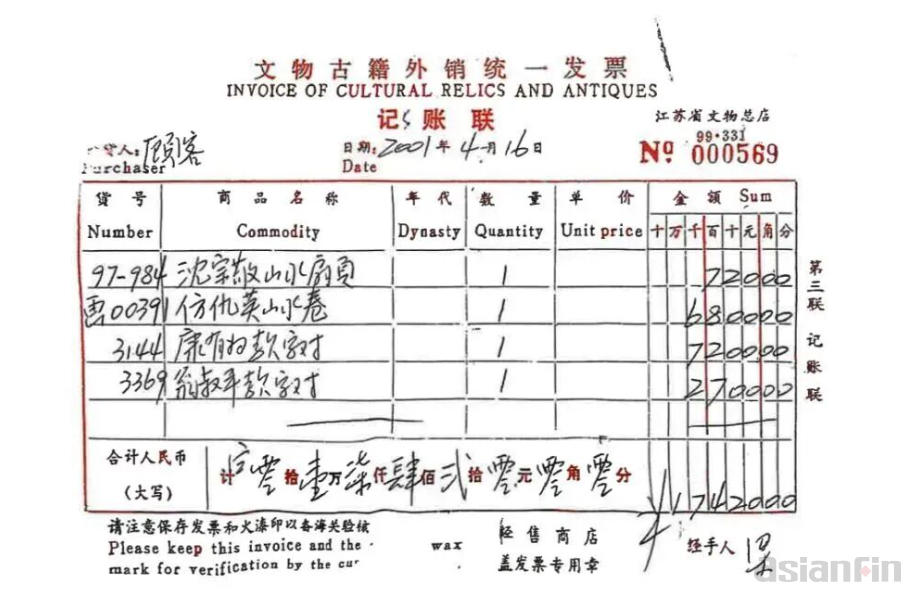 文物古籍外销统一发票
INVOICE OF CULTURAL RELICS AND ANTIQUES
记账联
江苏省文物总店
99·331
货人: 顾客
Purchaser
日期: 2001年4月16日
Date
Nº 000569
货号 商品名称 年代 数量 单价 金额 Sum
Number Commodity Dynasty Quantity Unit price 十万千百十元角分
97-984 沈宗敬山水扇页 1 72000
00391 仿仇英山水卷 1 680000
3144 康有为款字对 1 720000
3369 翁叔平款字对 1 270000
合计人民币
(大写)
计 零拾壹万柒仟肆佰贰拾零元零角零分
¥1742000
第三联 记账联
请注意保存发票和火漆印以备海关验核
Please keep this invoice and the wax
mark for verification by the
经售商店
盖发票专用章
经手人 梁
AsianFin